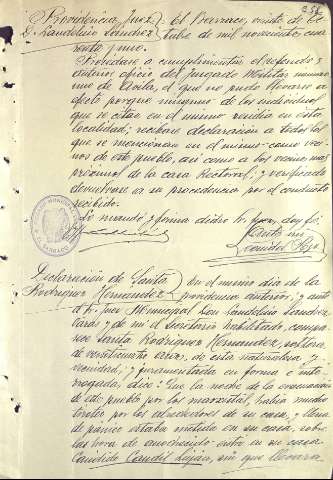 256
Providencia Juez } El Barraco, veinte de Oc-
D. Sandelio Sanchez } tubre de mil novecientos cua-
renta y uno.
Procedase a cumplimentar el referido y
anterior oficio del Juzgado Militar numero
uno de Avila, el que no pudo llevarse a
efecto porque ninguno de los individuos
que se citan en el mismo residia en esta
localidad; recibase declaración a todos los
que se mencionan en el mismo como veci-
nos de este pueblo, asi como a los vecinos mas
proximos de la casa Rectoral; y verificado
devuelvase a su procedencia por el conducto
recibido.
Lo mandó y firma dicho Sr. Juez, doy fe.
Ante mi,
Declaración de Sarita } En el mismo dia de la
Rodriguez Hernandez } providencia anterior, y ante
el Sr. Juez Municipal Don Sandelio Sanchez
y de mi el Secretario habilitado, compa-
rece Sarita Rodriguez Hernandez, soltera,
de veinticuatro años, de esta naturaleza y
vecindad, y juramentada en forma e inte-
rrogada, dice: Que la noche de la evacuación
de este pueblo por los marxistas, habia mucho
tiroteo por los alrededores de su casa, y llena
de pánico estaba metida en su casa, sobre
las hora de anochecido entró en su casa
Candido Candil Lujan, sin que llevara